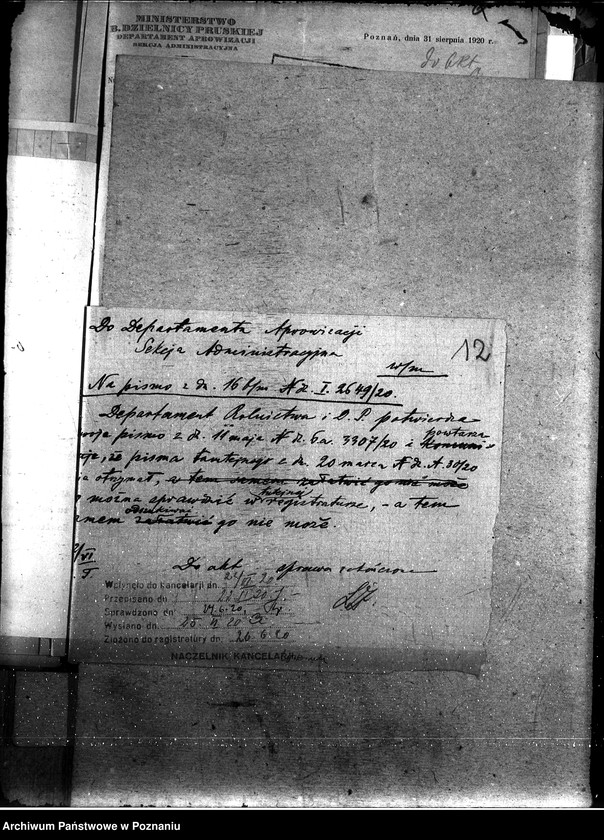 MINISTERSTWO
B. DZIELNICY PRUSKIEJ
DEPARTAMENT APROWIZACJI
SEKCJA ADMINISTRACYJNA
Poznań, dnia 31 sierpnia 1920 r.
do akt
12
Do Departamentu Aprowizacji
Sekcja Administracyjna
w/m
Na pismo z dn. 16 b/m N dz. I. 2649/20.
Departament Rolnictwa i D. P. potwierdza
pismo z d. 11 maja N dz. 6a. 3307/20 i powtarza
że pisma tamtejszego z d. 20 marca N dz. A. 30/20
otrzymał, a tem samem załatwić go nie może
można sprawdzić w tutejszej registraturze, - a tem
odszukiwać
załatwić go nie może.
Do akt sprawa załatwiona
Wpłynęło do kancelarji dn.
Przepisano dn.
Sprawdzono dn. 24.6.20.
Wysłano dn.
Złożono do registratury dn. 26.6.20
NACZELNIK KANCELARJI
Archiwum Państwowe w Poznaniu